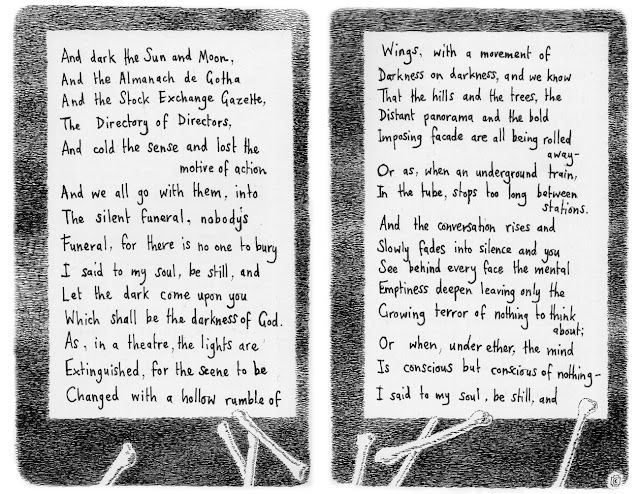 And dark the Sun and Moon,
And the Almanach de Gotha
And the Stock Exchange Gazette,
The Directory of Directors,
And cold the sense and lost the
motive of action
And we all go with them, into
The silent funeral, nobody's
Funeral, for there is no one to bury
I said to my soul, be still, and
Let the dark come upon you
Which shall be the darkness of God.
As, in a theatre, the lights are
Extinguished, for the scene to be
Changed with a hollow rumble of
Wings, with a movement of
Darkness on darkness, and we know
That the hills and the trees, the
Distant panorama and the bold
Imposing facade are all being rolled
away—
Or as, when an underground train,
In the tube, stops too long between
stations.
And the conversation rises and
Slowly fades into silence and you
See behind every face the mental
Emptiness deepen leaving only the
Growing terror of nothing to think
about;
Or when, under ether, the mind
Is conscious but conscious of nothing—
I said to my soul, be still, and